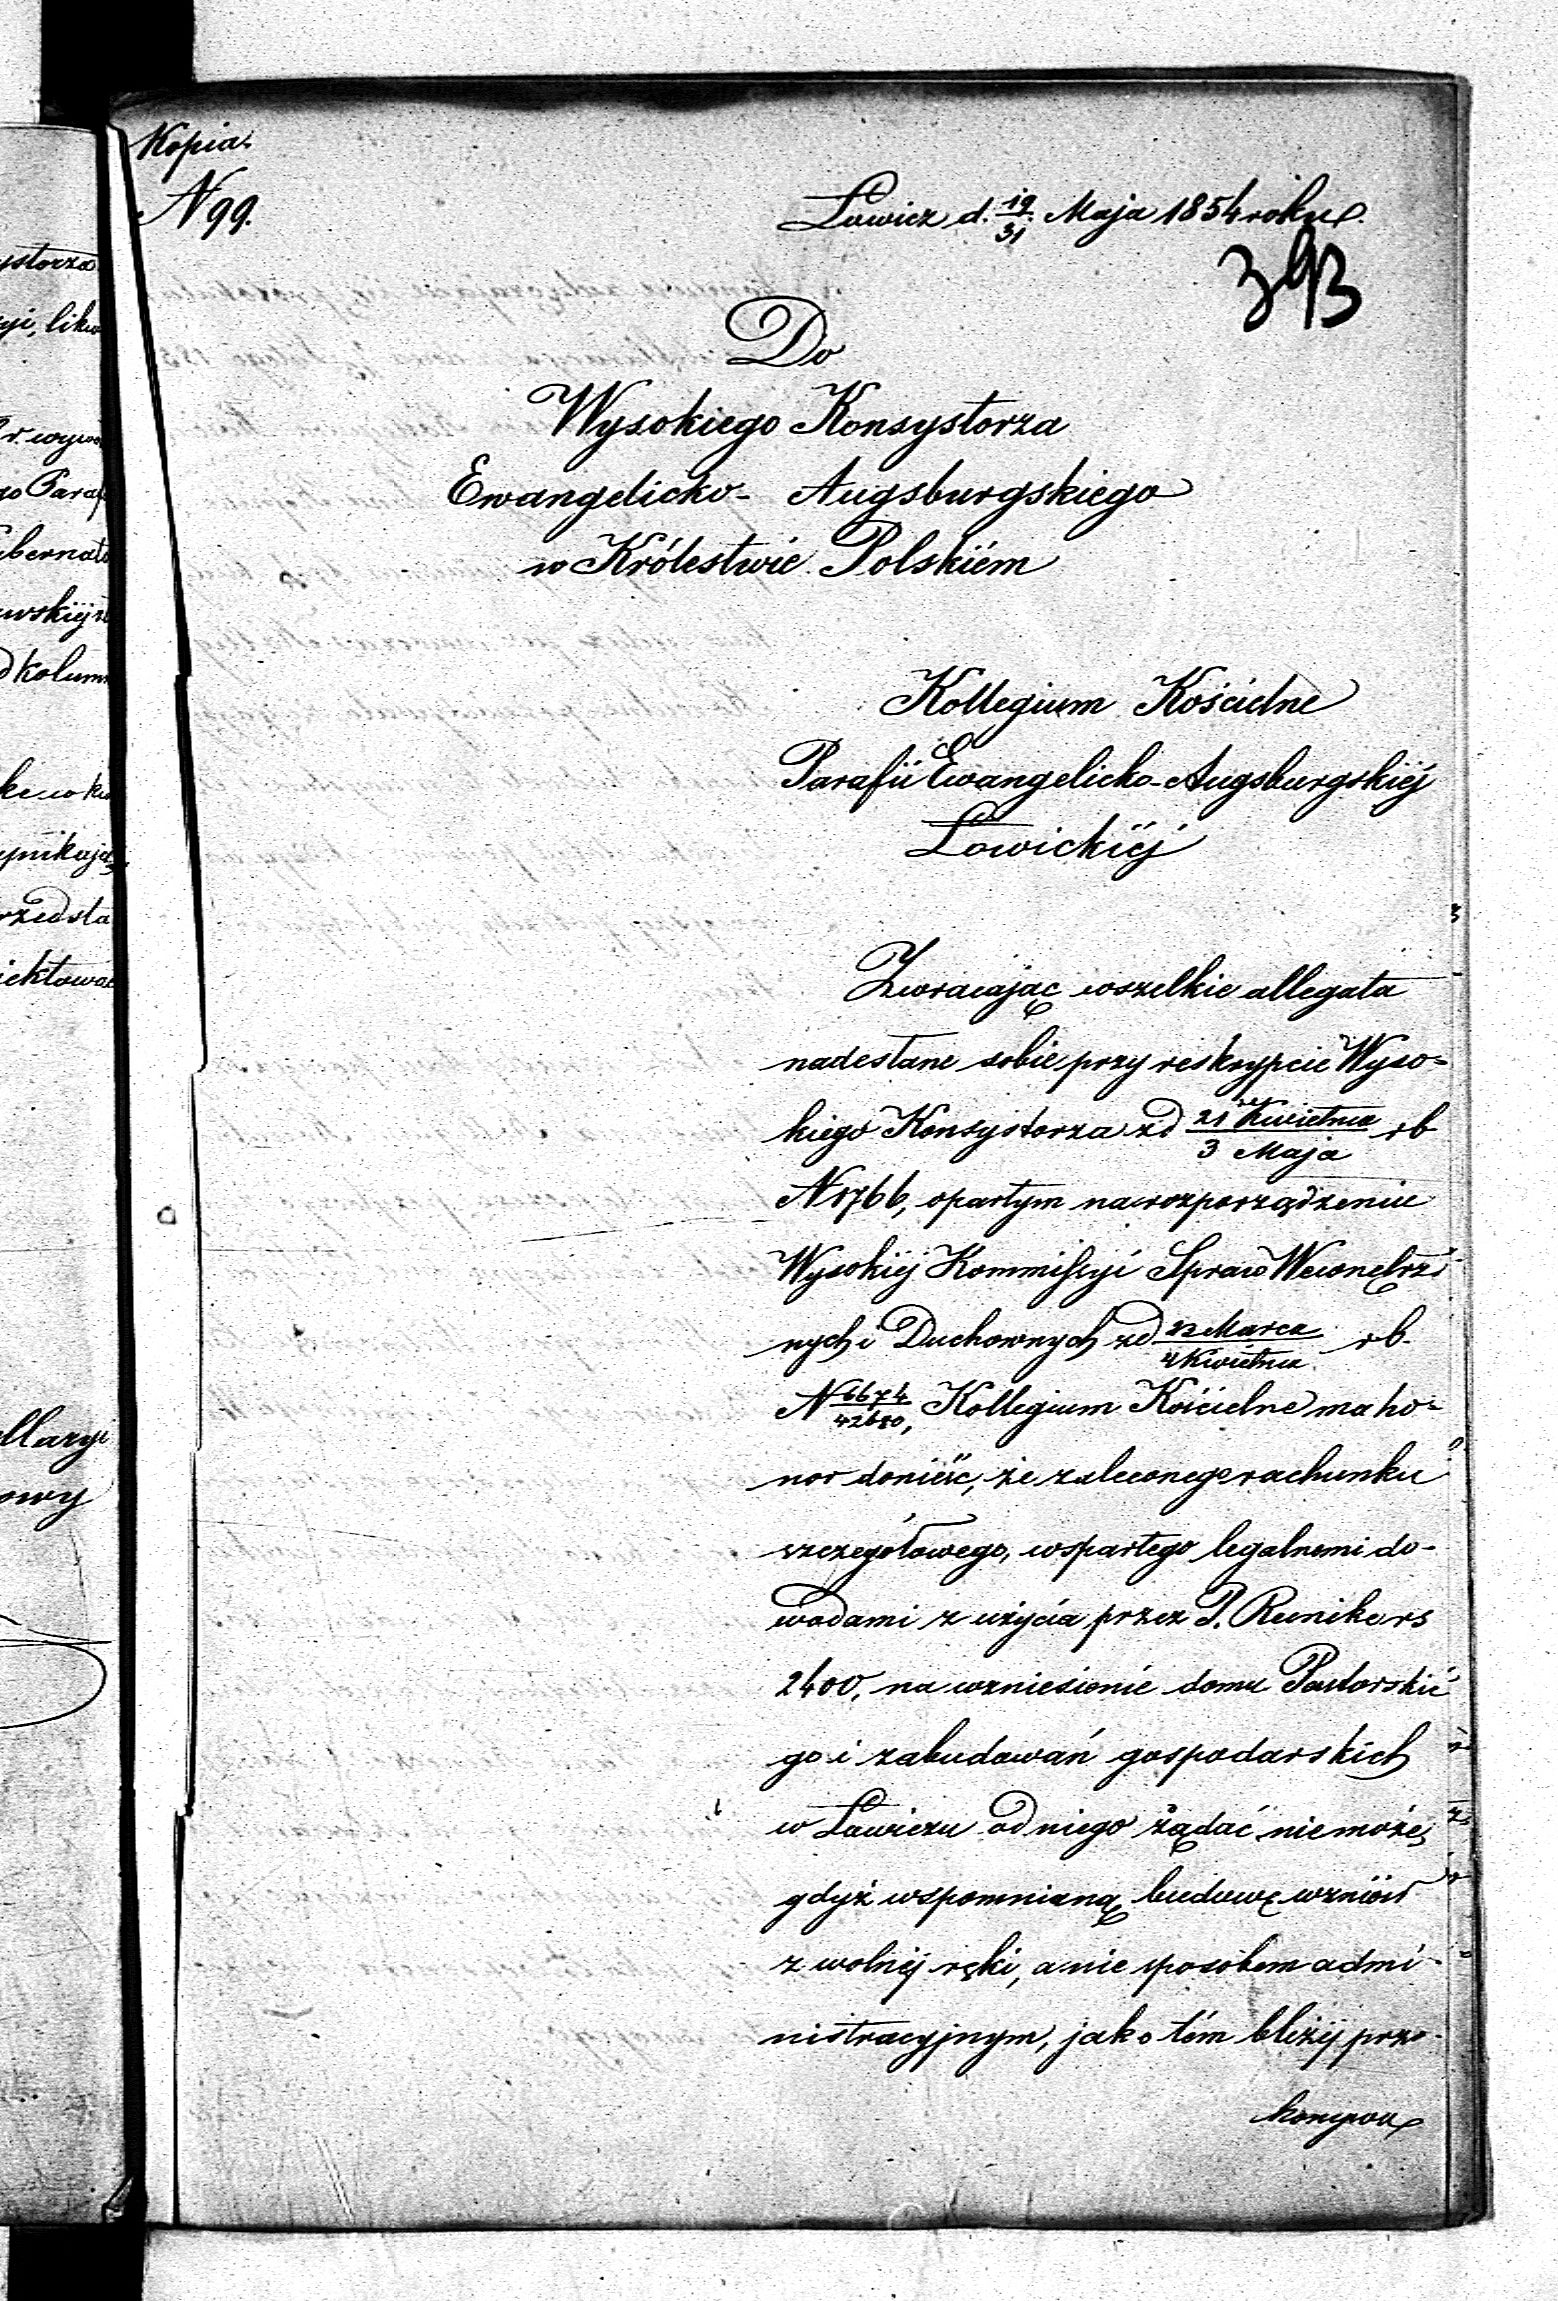 Kopia.
N 99.
Łowicz d. 19/31 Maja 1854 roku.
393
Do
Wysokiego Konsystorza
Ewangelicko- Augsburgskiego
w Królestwie Polskiém
Kollegium Kościelne
Parafii Ewangelicko-Augsburgskiéj
Łowickiéj
Zwracając wszelkie allegata
nadesłane sobie przy reskrypcie Wyso-
kiego Konsystorza z d 21 Kwietnia/3 Maja rb
N 1766, opartym na rozporządzeniu
Wysokiéj Kommissyi Spraw Wewnętrz-
nych i Duchownych z d 22 Marca/4 Kwietnia rb.
N 6674/42680, Kollegium Kościelne ma ho-
nor donieść, że zaleconego rachunku
szczegółowego, wspartego legalnemi do-
wodami z użycia przez P. Reinike rs
2400, na wzniesienie domu Pastorskie-
go i zabudowań gospodarskich
w Łowiczu od niego żądać niemoże,
gdyż wspomnianą budowę wzniósł
z wolnéj ręki, a nie sposobem admi-
nistracyjnym, jak o tém bliżéj prze-
konywa
ystorza
yi, likw
r. wyw
go Paraf
ubernato
wskiéj
d kolum
ke w kw
ynikają
rzedsta
iektowa
llaryi
owy